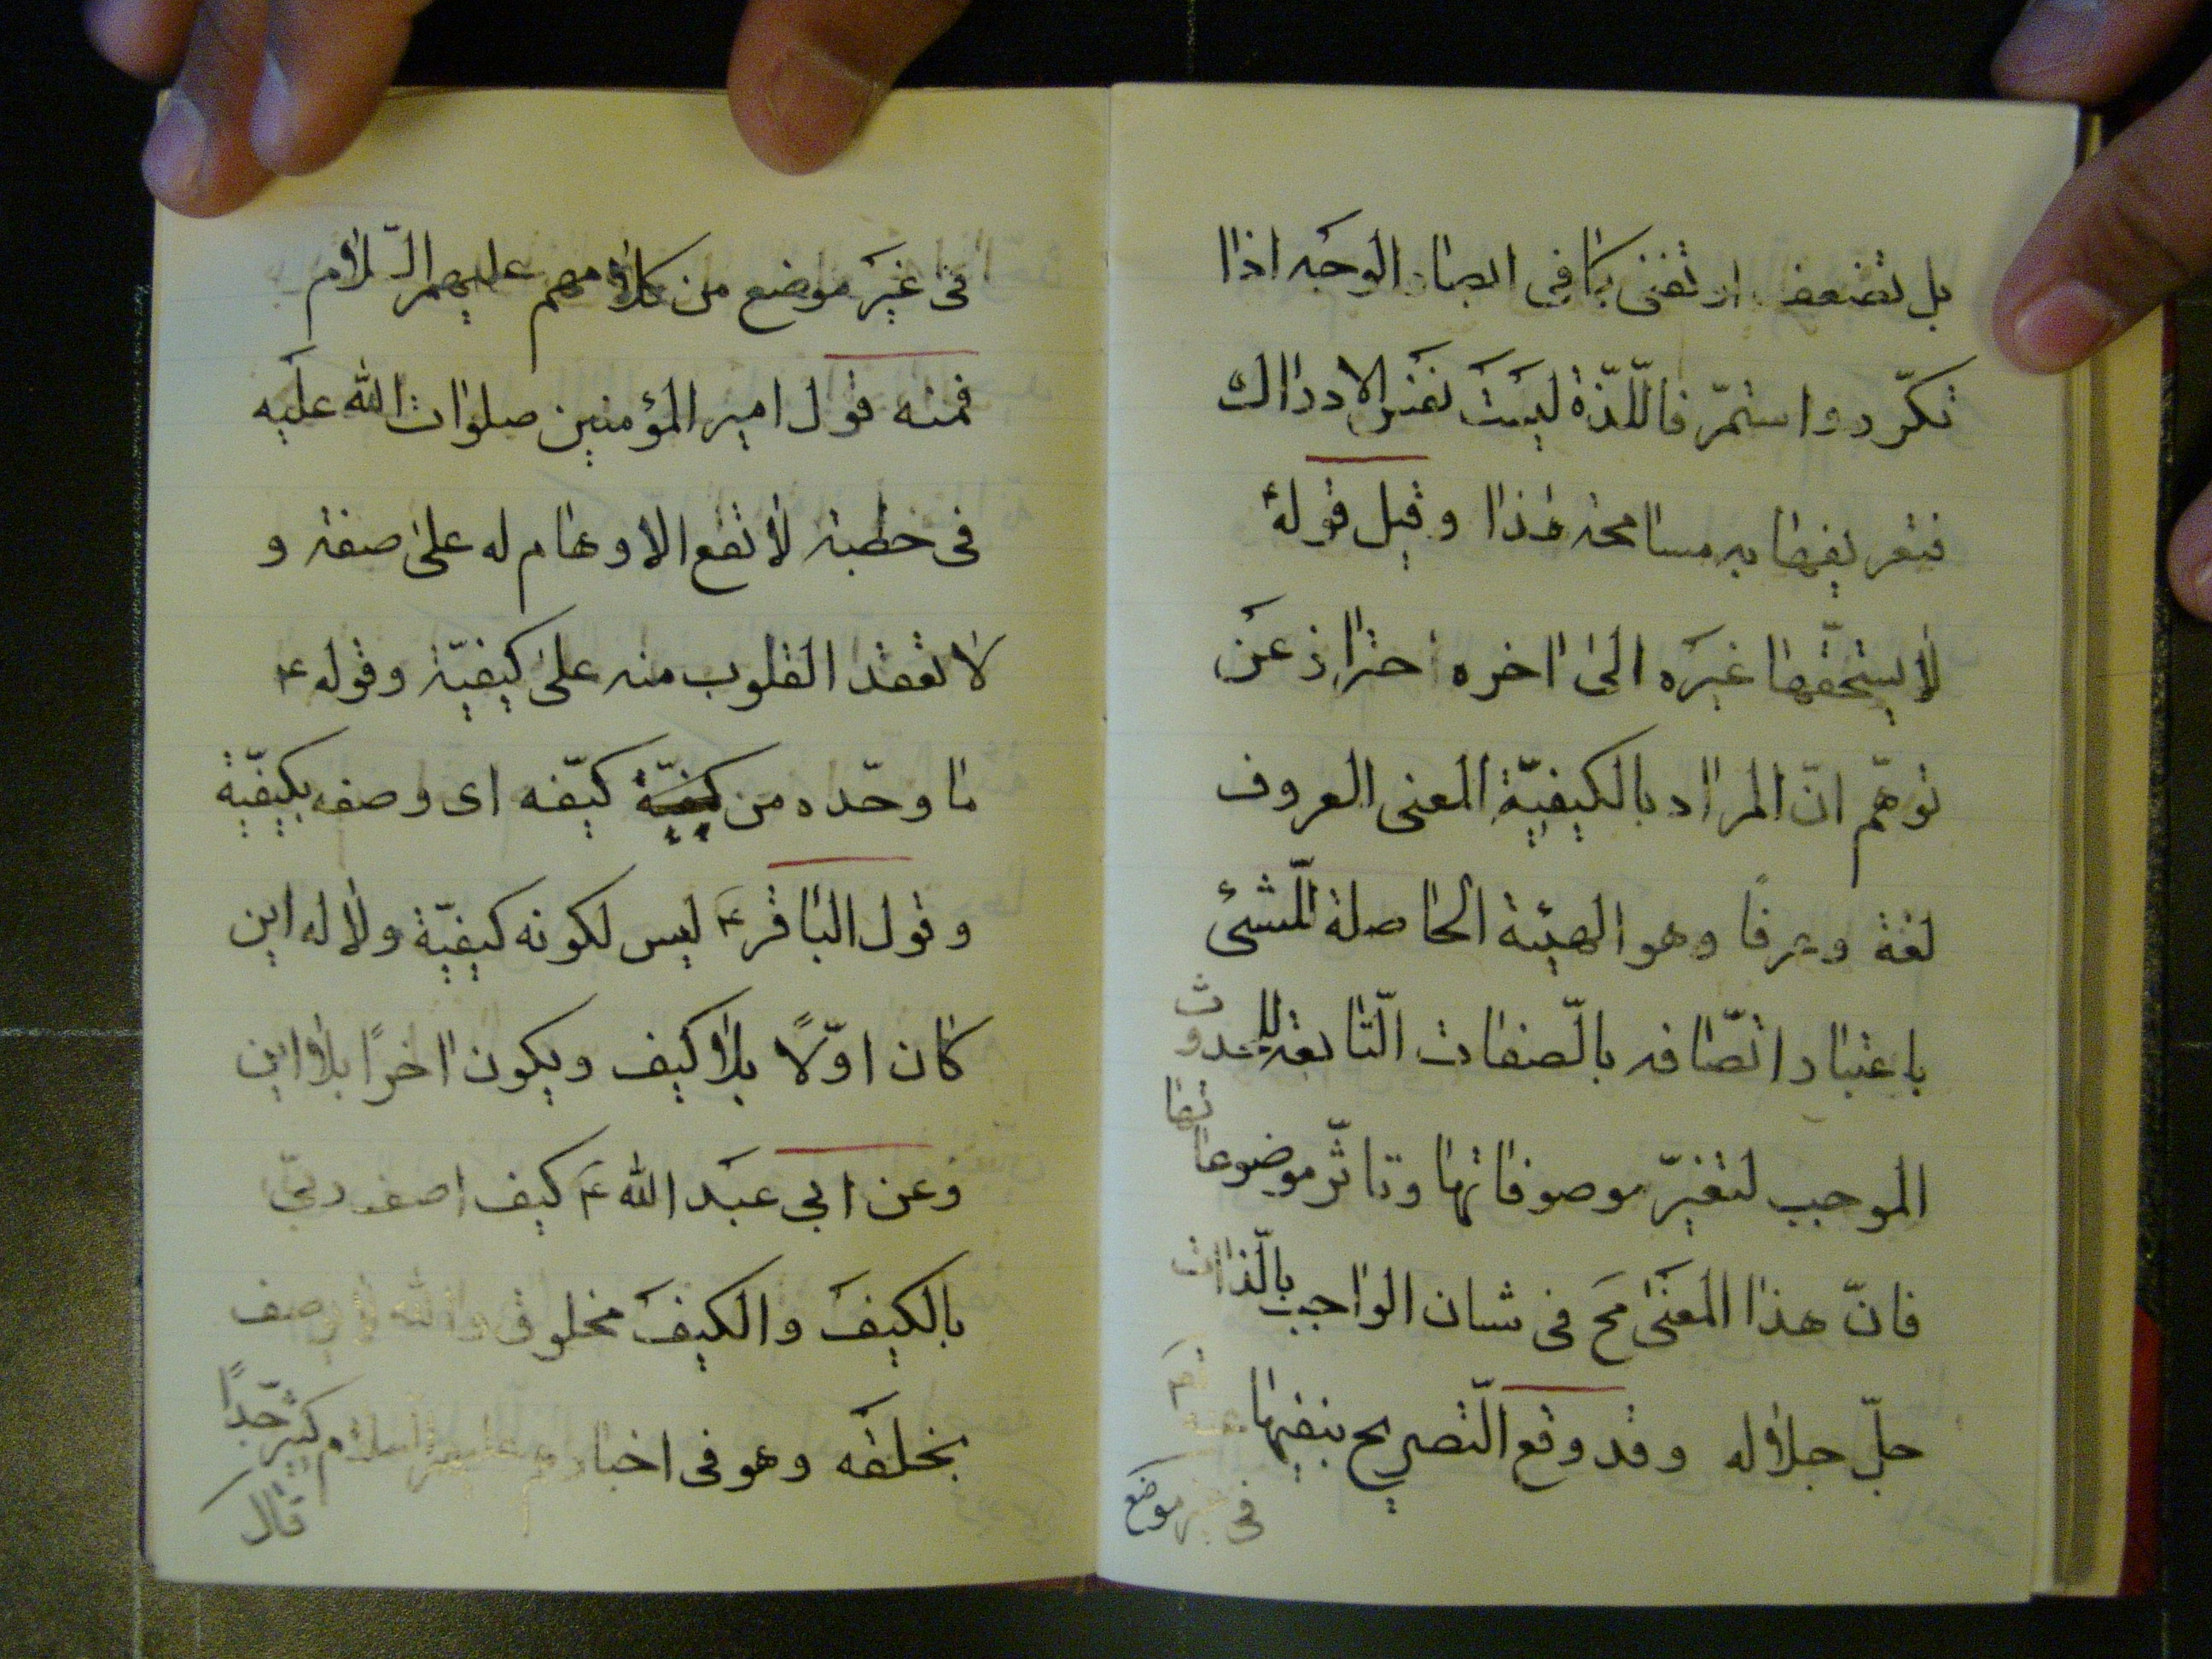 بل تضعف او تفنى كما فى ابصار الوجه اذا
تكرّر واستمرّ فاللّذة ليست نفس الادراك
فتعريفها به مسامحة هذا وقيل قولهٔ
لا يستحقّها غيره الى اخره احتراز عن
توهّم انّ المراد بالكيفيّة المعنى المعروف
لغة وعرفًا وهو الهيئة الحاصلة للّشئ
باعتبار اتّصافه بالّصفات الّتابعة للحدوث
الموجب لتغيّر موصوفاتها وتاثّر موضوعاتها
فانّ هذا المعنى مح فى شان الواجب بالّذات
جلّ جلاله وقد وقع الّتصريح بنفيها عنه
فى غير موضع
فى غير موضع من كلامهم عليهم السّلام
فمنه قول امير المؤمنين صلوات الله عليه
فى خطبة لا تقع الاوهام له على صفة و
لا تعقد القلوب منه على كيفيّة وقوله ع
ما وحّده من كيّفه اى وصفه بكيفيّة
وقول الباقر ع ليس لكونه كيفيّة ولا له اين
كان اوّلًا بلا كيف ويكون اخرًا بلا اين
وعن ابى عبد الله ع كيف اصف ربّى
بالكيف والكيف مخلوق والله لا يوصف
بخلقه وهو فى اخبارهم عليهم السلام كثير جّدًا
قال